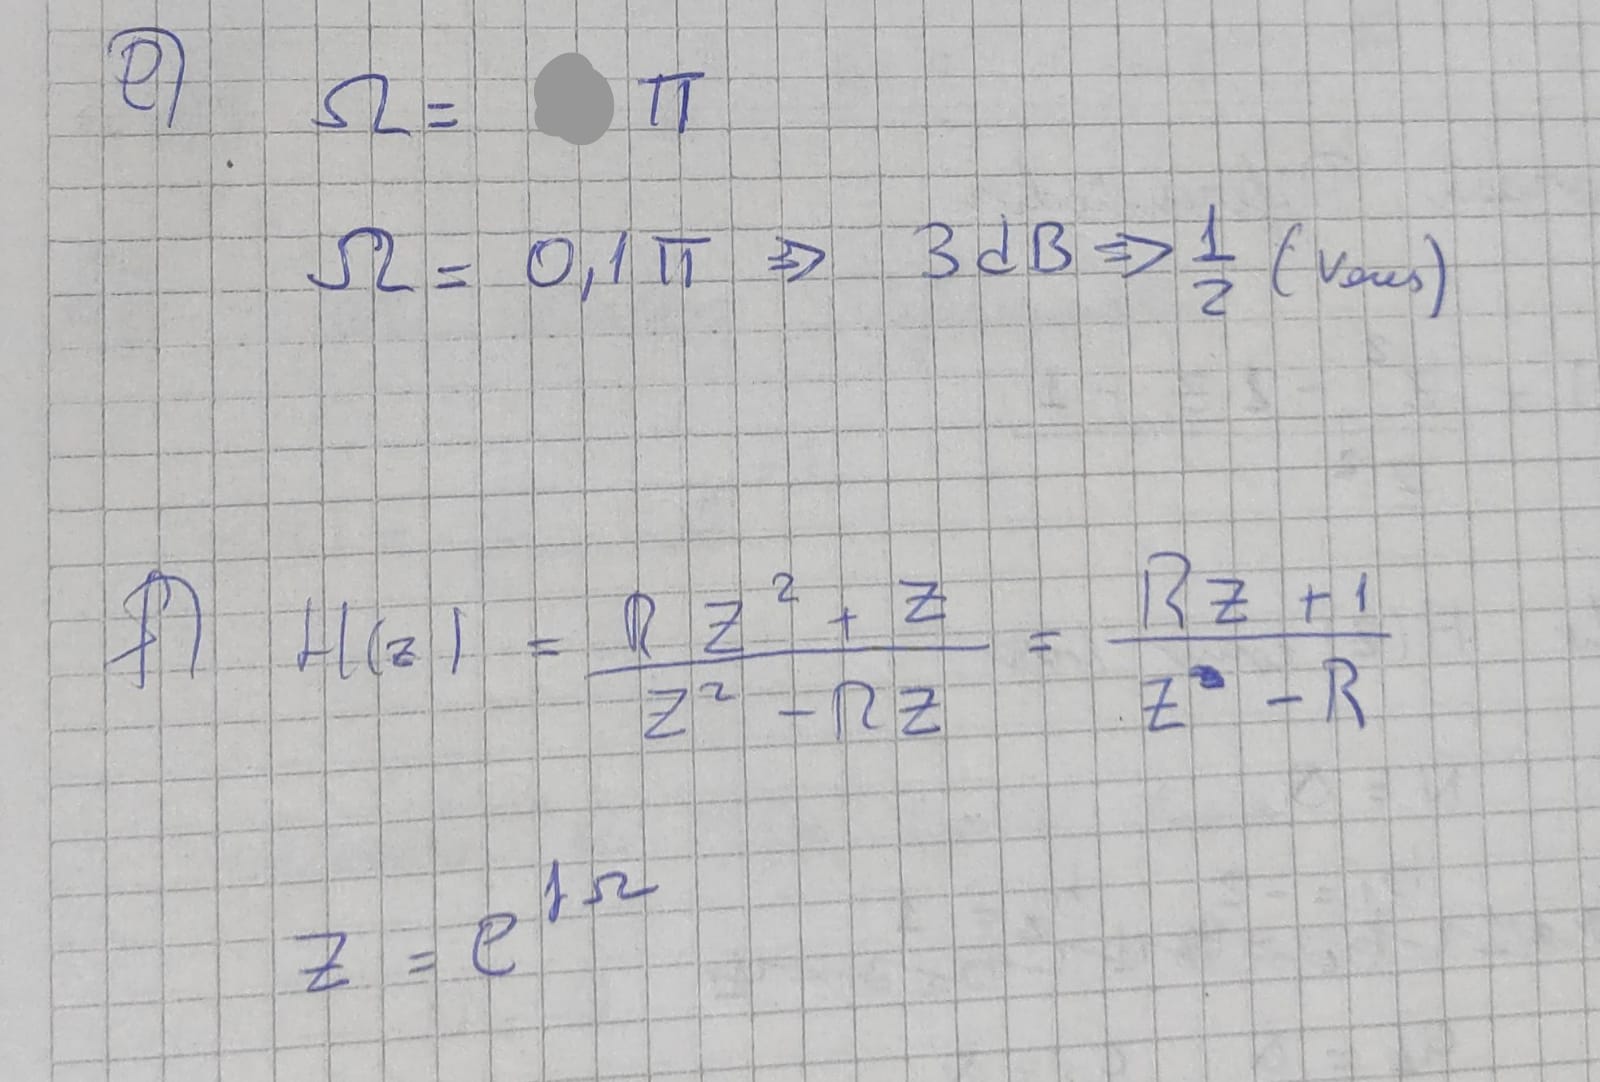 e)
Ω = π
Ω = 0,1 π ⇒ 3 dB ⇒ 1/2 ( )
f) H(z) = (R z² + z)/(z² - R z) = (R z + 1)/(z - R)
z = e^{jΩ}